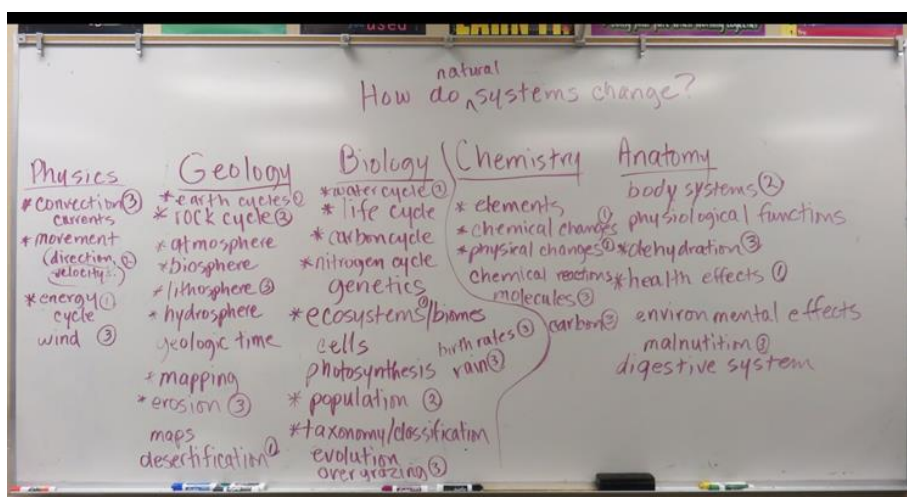 used
natural
How do ^ systems change?
Physics
*convection ③
currents
*movement
(direction, ②
velocity...)
*energy ①
cycle
wind ③
Geology
*earth cycles ②
*rock cycle ③
*atmosphere
*biosphere
*lithosphere ③
*hydrosphere
geologic time
*mapping
*erosion ③
maps
desertification ①
Biology
*water cycle ②
*life cycle
*carbon cycle
*nitrogen cycle
genetics
*ecosystems/biomes
cells
birth rates ③
photosynthesis rain ③
*population ②
*taxonomy/classification
evolution
overgrazing ③
Chemistry
*elements
*chemical changes ①
*physical changes ①
chemical reactions
molecules ③
carbon ③
Anatomy
body systems ②
physiological functions
*dehydration ③
*health effects ①
environmental effects
malnutition ③
digestive system